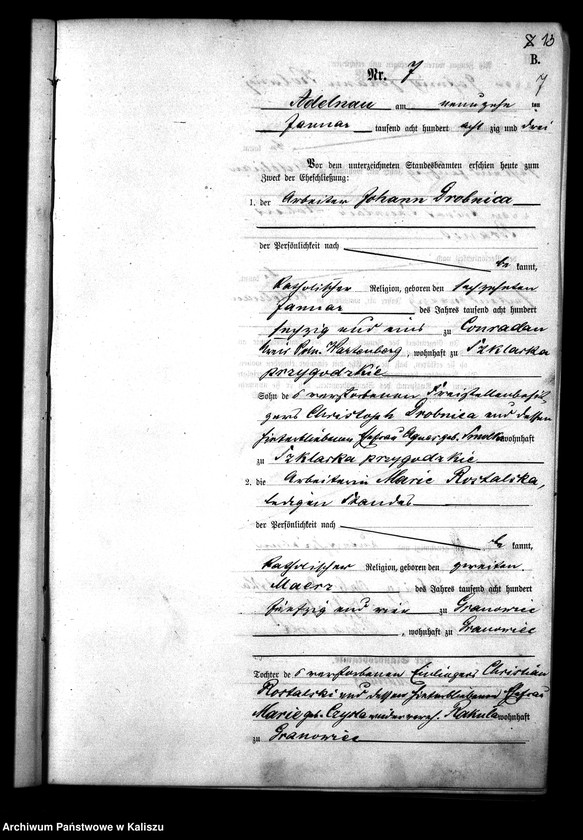 8 13
B.
Nr. 7
7
Adelnau am neunzehn ten
Januar tausend acht hundert acht zig und drei
Vor dem unterzeichneten Standesbeamten erschien heute zum
Zweck der Eheschließung:
1. der Arbeiter Johann Drobnica
der Persönlichkeit nach
be kannt,
katholischer Religion, geboren den sechzehnten
Januar des Jahres tausend acht hundert
sechzig und eins zu Conradau
Kreis Poln. Wartenberg, wohnhaft zu Szklarka
przygodzkie
Sohn des verstorbenen Freistellenbesit
zers Christoph Drobnica und dessen
hinterbliebenen Ehefrau Agnes geb. wohnhaft
zu Szklarka przygodzkie
2. die Arbeiterin Marie Rostalska,
ledigen Standes
der Persönlichkeit nach
be kannt,
katholischer Religion, geboren den zweiten
Maerz des Jahres tausend acht hundert
fünfzig und vier zu Granowiec
, wohnhaft zu Granowiec
Tochter des verstorbenen Einliegers Christian
Rostalski und dessen hinterbliebenen Ehefrau
Marie geb. Czysta wiedervereh. Rakula wohnhaft
zu Granowiec
Archiwum Państwowe w Kaliszu